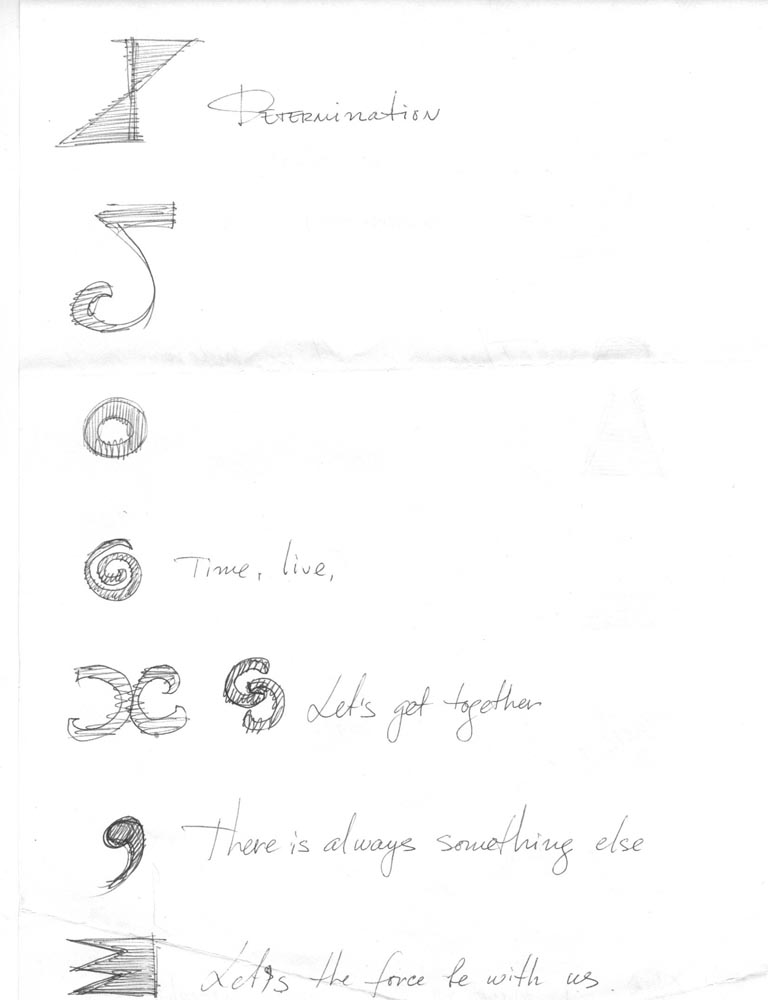 Determination
Time, live,
Let's get together
There is always something else
Let's the force be with us.